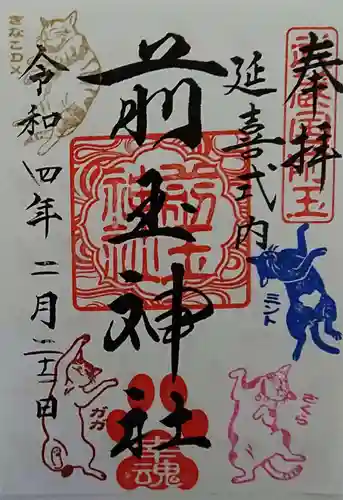 奉拝
延喜式内
前玉神社
令和四年二月二十二日
きなこDX
ミント
ガガ
さくら
幸魂
前玉神社